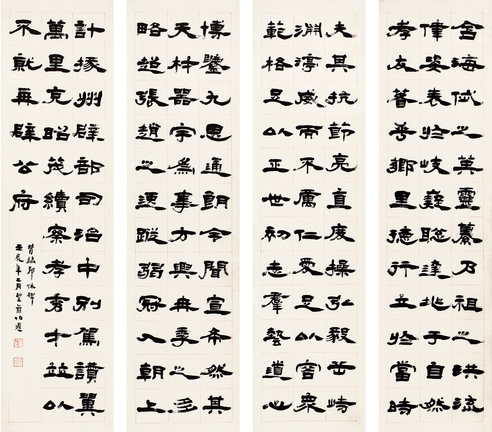 含海岱之英靈纂乃祖之洪流
律姿表於岐嶷聰達兆于自然
孝友著乎鄉里德行立於當時
夫其抗節亮直度操弘毅岳峙
淵渟威而不厲仁愛足以容眾
範格足以正世初志羣藝道心
博鑒九思通朗令聞宣布然其
天材器宇為事方興再季之多
略趙張趙之逸蹤弱冠入朝上
計掾州辟部司治中別駕讚翼
萬里克昭茂績察孝秀才並以
不就再辟公府
臨郭休碑
年二月